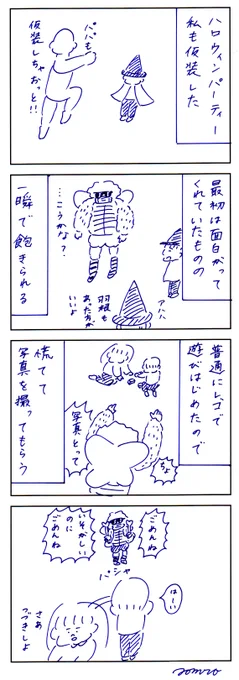 ハロウィンパーティー
私も仮装した
パパも
仮装しちゃおっと!!
最初は面白がって
くれていたものの
…こうかな?
アハハ
羽根も
あった方が
いいよ
一瞬で飽きられる
普通にレゴで
遊びはじめたので
ちょ
写真とって
慌てて
写真を撮ってもらう
ごめんね
いそがしい
のに
ごめんね
パシャ
はーい
さぁ
つづきしよ